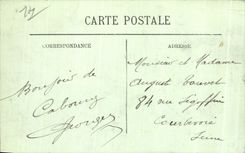 CARTE POSTALE
CORRESPONDANCE
ADRESSE
Bonjour de
Cabourg
Georges
Monsieur et Madame
August
84 rue
Courbevoie
Seine